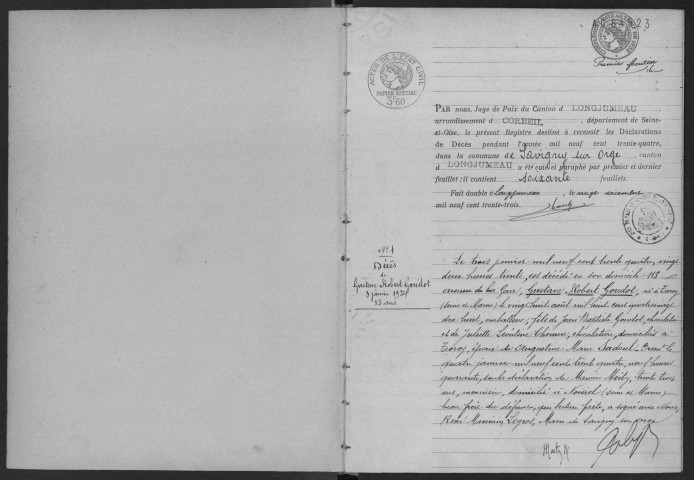 23
Premier feuillet
ACTES DE L'ÉTAT CIVIL
PAPIER SPÉCIAL
3f60
PAR nous, Juge de Paix du Canton d LONGJUMEAU,
arrondissement d CORBEIL, département de Seine-
et-Oise, le présent Registre destiné à recevoir les Déclarations
de Décès pendant l'année mil neuf cent trente-quatre,
dans la commune de Savigny sur Orge, canton
d LONGJUMEAU a été coté et paraphé par premier et dernier
feuillet: il contient soixante feuillets.
Fait double à Longjumeau, le vingt décembre
mil neuf cent trente-trois.
N° 1
Décès
de
Gustave Robert Goudot
3 janvier 1934
35 ans
Le trois janvier mil neuf cent trente quatre, vingt
deux heures trente, est décédé en son domicile 118
avenue de la Gare, Gustave Robert Goudot, né à Torcy
(Seine et Marne) le vingt huit août mil huit cent quatre vingt
dix huit, emballeur; fils de Jean Baptiste Goudot, chocolatier
et de Juliette Léontine Chemin, chocolatière, domiciliés à
Torcy, époux de Augustine Marie Sadoul. Dressé le
quatre janvier mil neuf cent trente quatre, neuf heures
quarante, sur la déclaration de Maurice trente trois
ans, menuisier, domicilié à Noisiel (Seine et Marne)
beau frère du défunt, qui lecture faite, a signé avec Nous,
René Maximin Legros, Maire de Savigny sur Orge